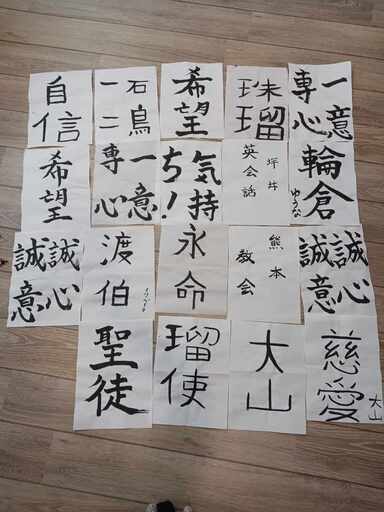 自信
石鳥
一二
希望
珠瑠
一意
専心
希望
一意
専心
気持
ち!
坪井
英会話
輪倉
ゆうな
誠心
誠意
渡伯
永命
熊本
教会
誠心
誠意
聖徒
瑠使
大山
慈愛
大山